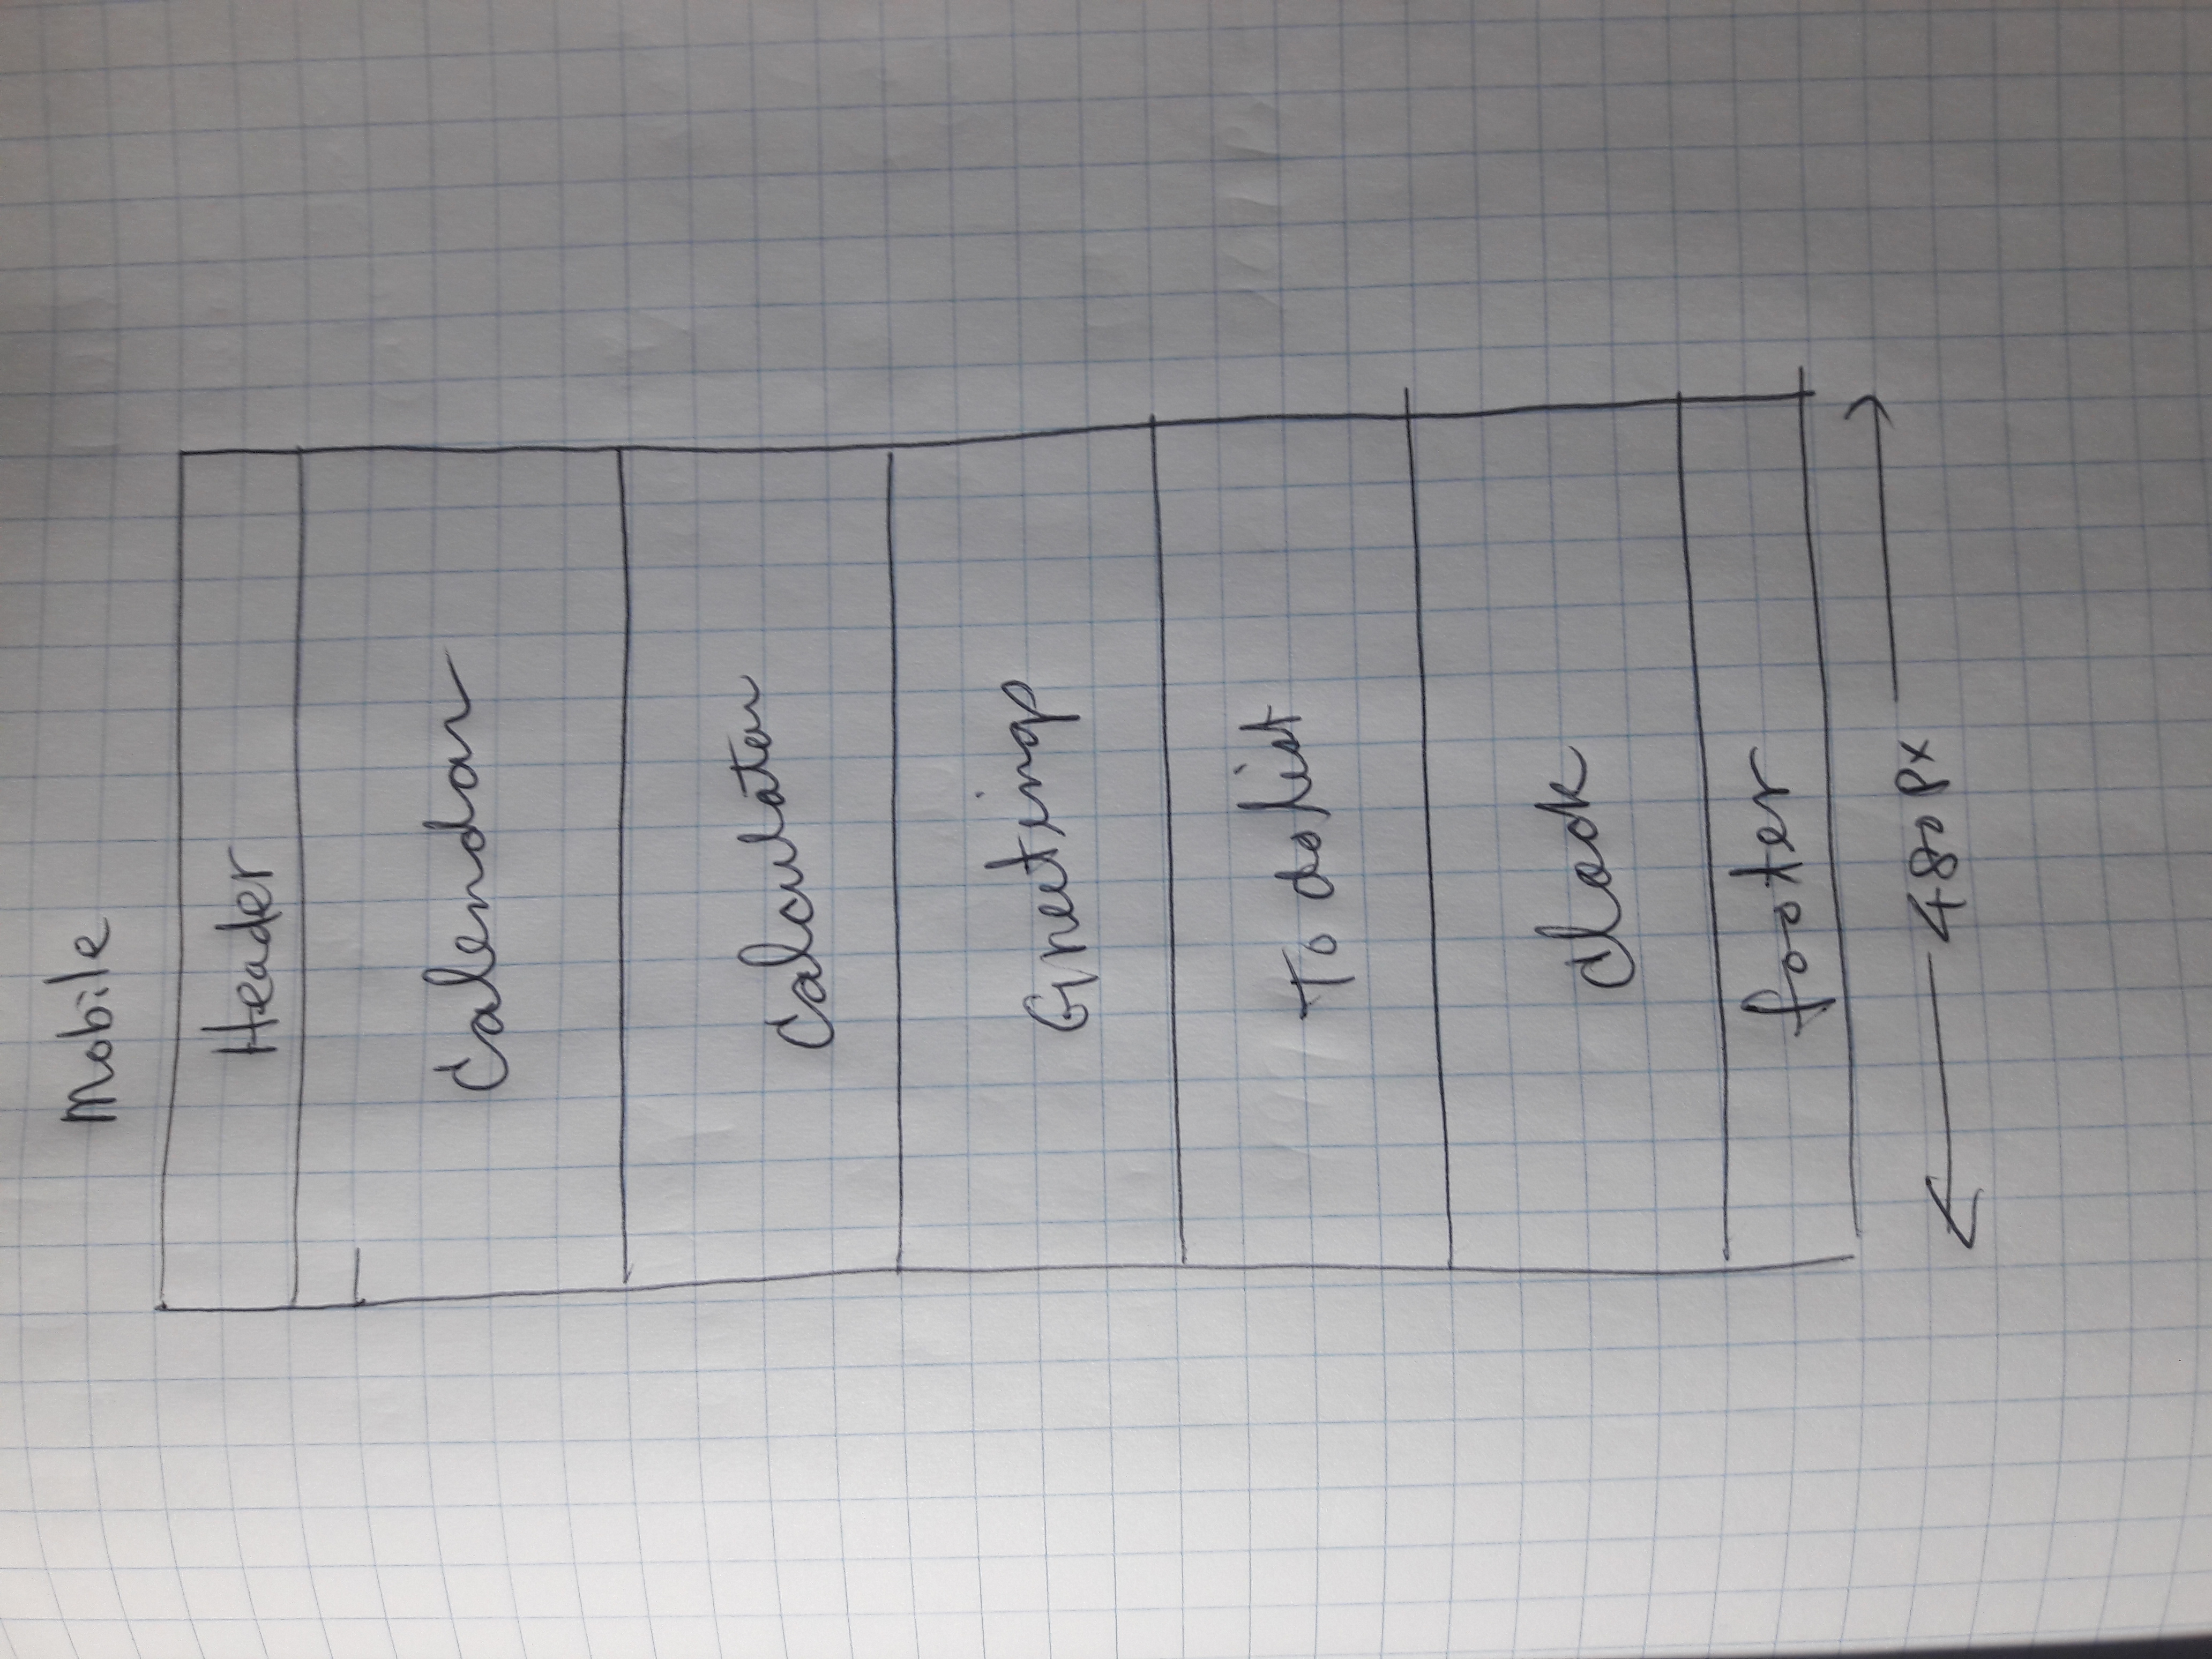 Mobile
Header
Calendar
Calculator
Greetings
To do list
Clock
footer
480 px